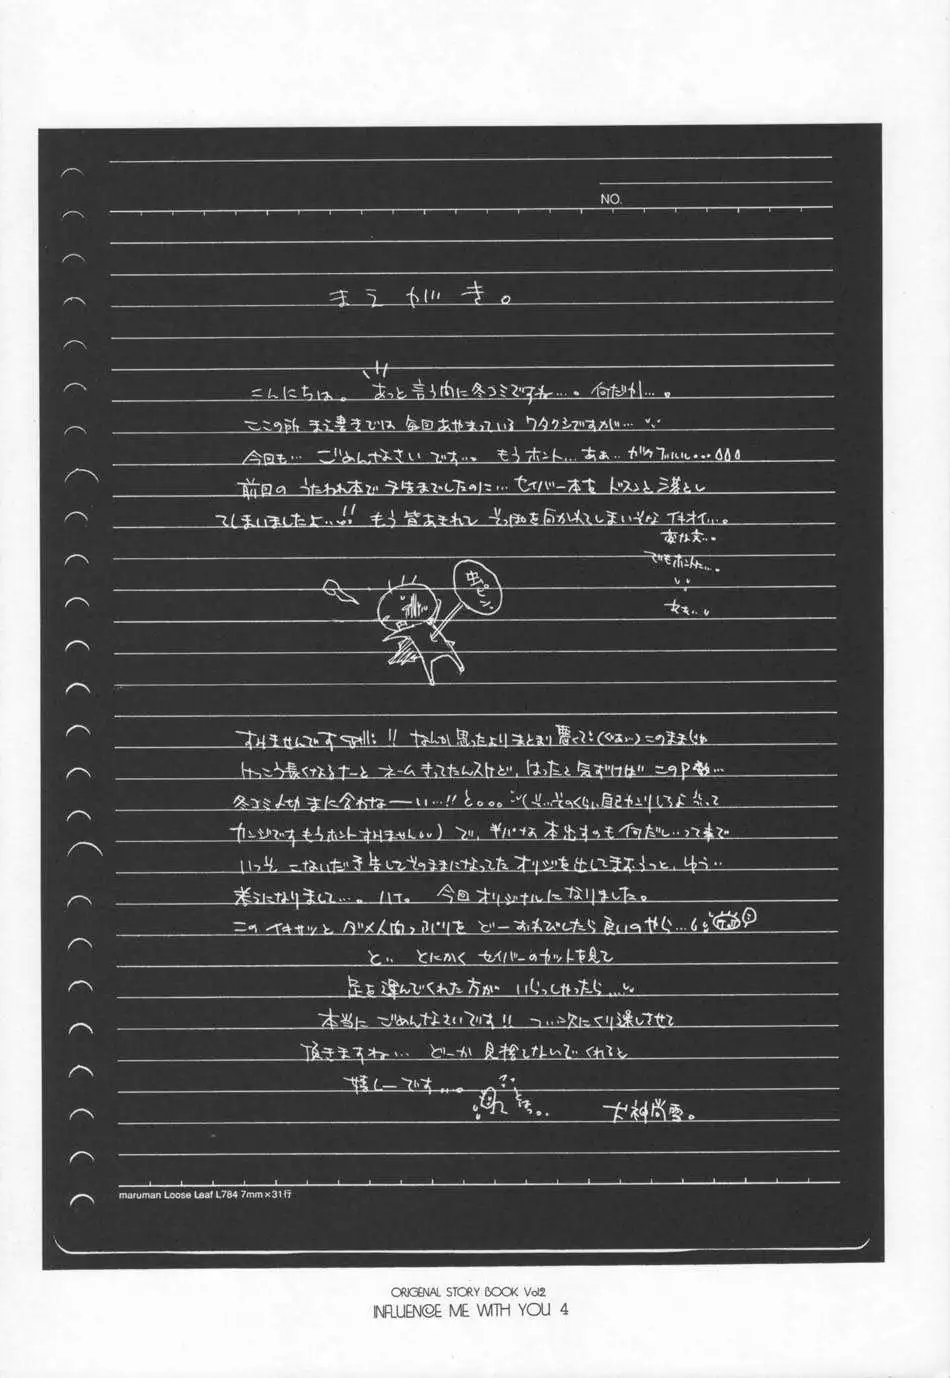 NO.
まえがき。
こんにちは。あっと言う間に冬コミですね…。何だか…。
ここの所 まえ書きでは 毎回あやまっている ワタクシですが…
今回も… ごめんなさい です…。もうホント…あぁ…ガクブルルル…
前回の うたわれ本で 予告までしたのに… セイバー本を ドスンと落とし
てしまいましたよ…!! もう 皆あきれて そっぽを向かれてしまいそな イキオイ…。
変な文…。
でもホントに…。
虫ピン。
すみませんです!! なんか思ったよりまとまり悪くて このままじゃ
けっこう長くなるなーと ネームきってたんスけど、はたと気づけば このP数…
冬コミ〆切 まに合わな——い…!! と。。。(そ…そのくらい自己カンリしろよ って
カンジです もうホント すみません) で、半パな 本出すのも何だし…って事で
いっそ こないだ予告してそのままになってた オリジを出してまおうっと、ゆう‥
考えになりまして…。ハイ。 今回オリジナルになりました。
この イキサツと ダメ人間っぷりを どーおわびしたら良いのやら…
と‥ とにかく セイバーのカットを見て
足を運んでくれた方が いらっしゃったら…
本当に ごめんなさいです!! つ…次にくり越しさせて
頂きますね… どーか 見捨てないでくれると
嬉しーです…。
犬神尚雪。
maruman Loose Leaf L784 7mm×31行
ORIGENAL STORY BOOK Vol.2
INFLUENCE ME WITH YOU 4